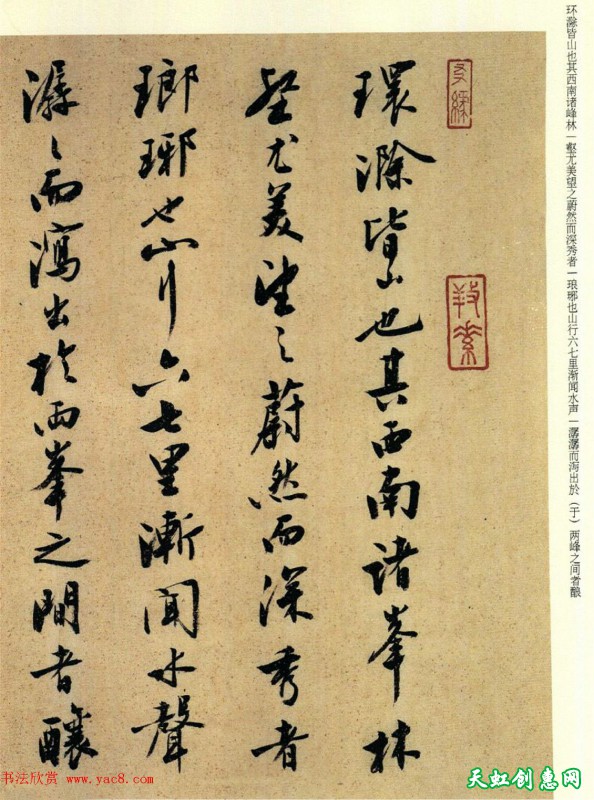 环滁皆山也其西南诸峰林一壑尤美望之蔚然而深秀者一琅琊也山行六七里渐闻水声一潺潺而泻出於（于）两峰之间者酿
環滁皆山也其西南諸峯林
壑尤美望之蔚然而深秀者
瑯琊也山行六七里漸聞水聲
潺〻而瀉出於兩峯之間者釀
书法欣赏 www.yac8.com
天虹创惠网